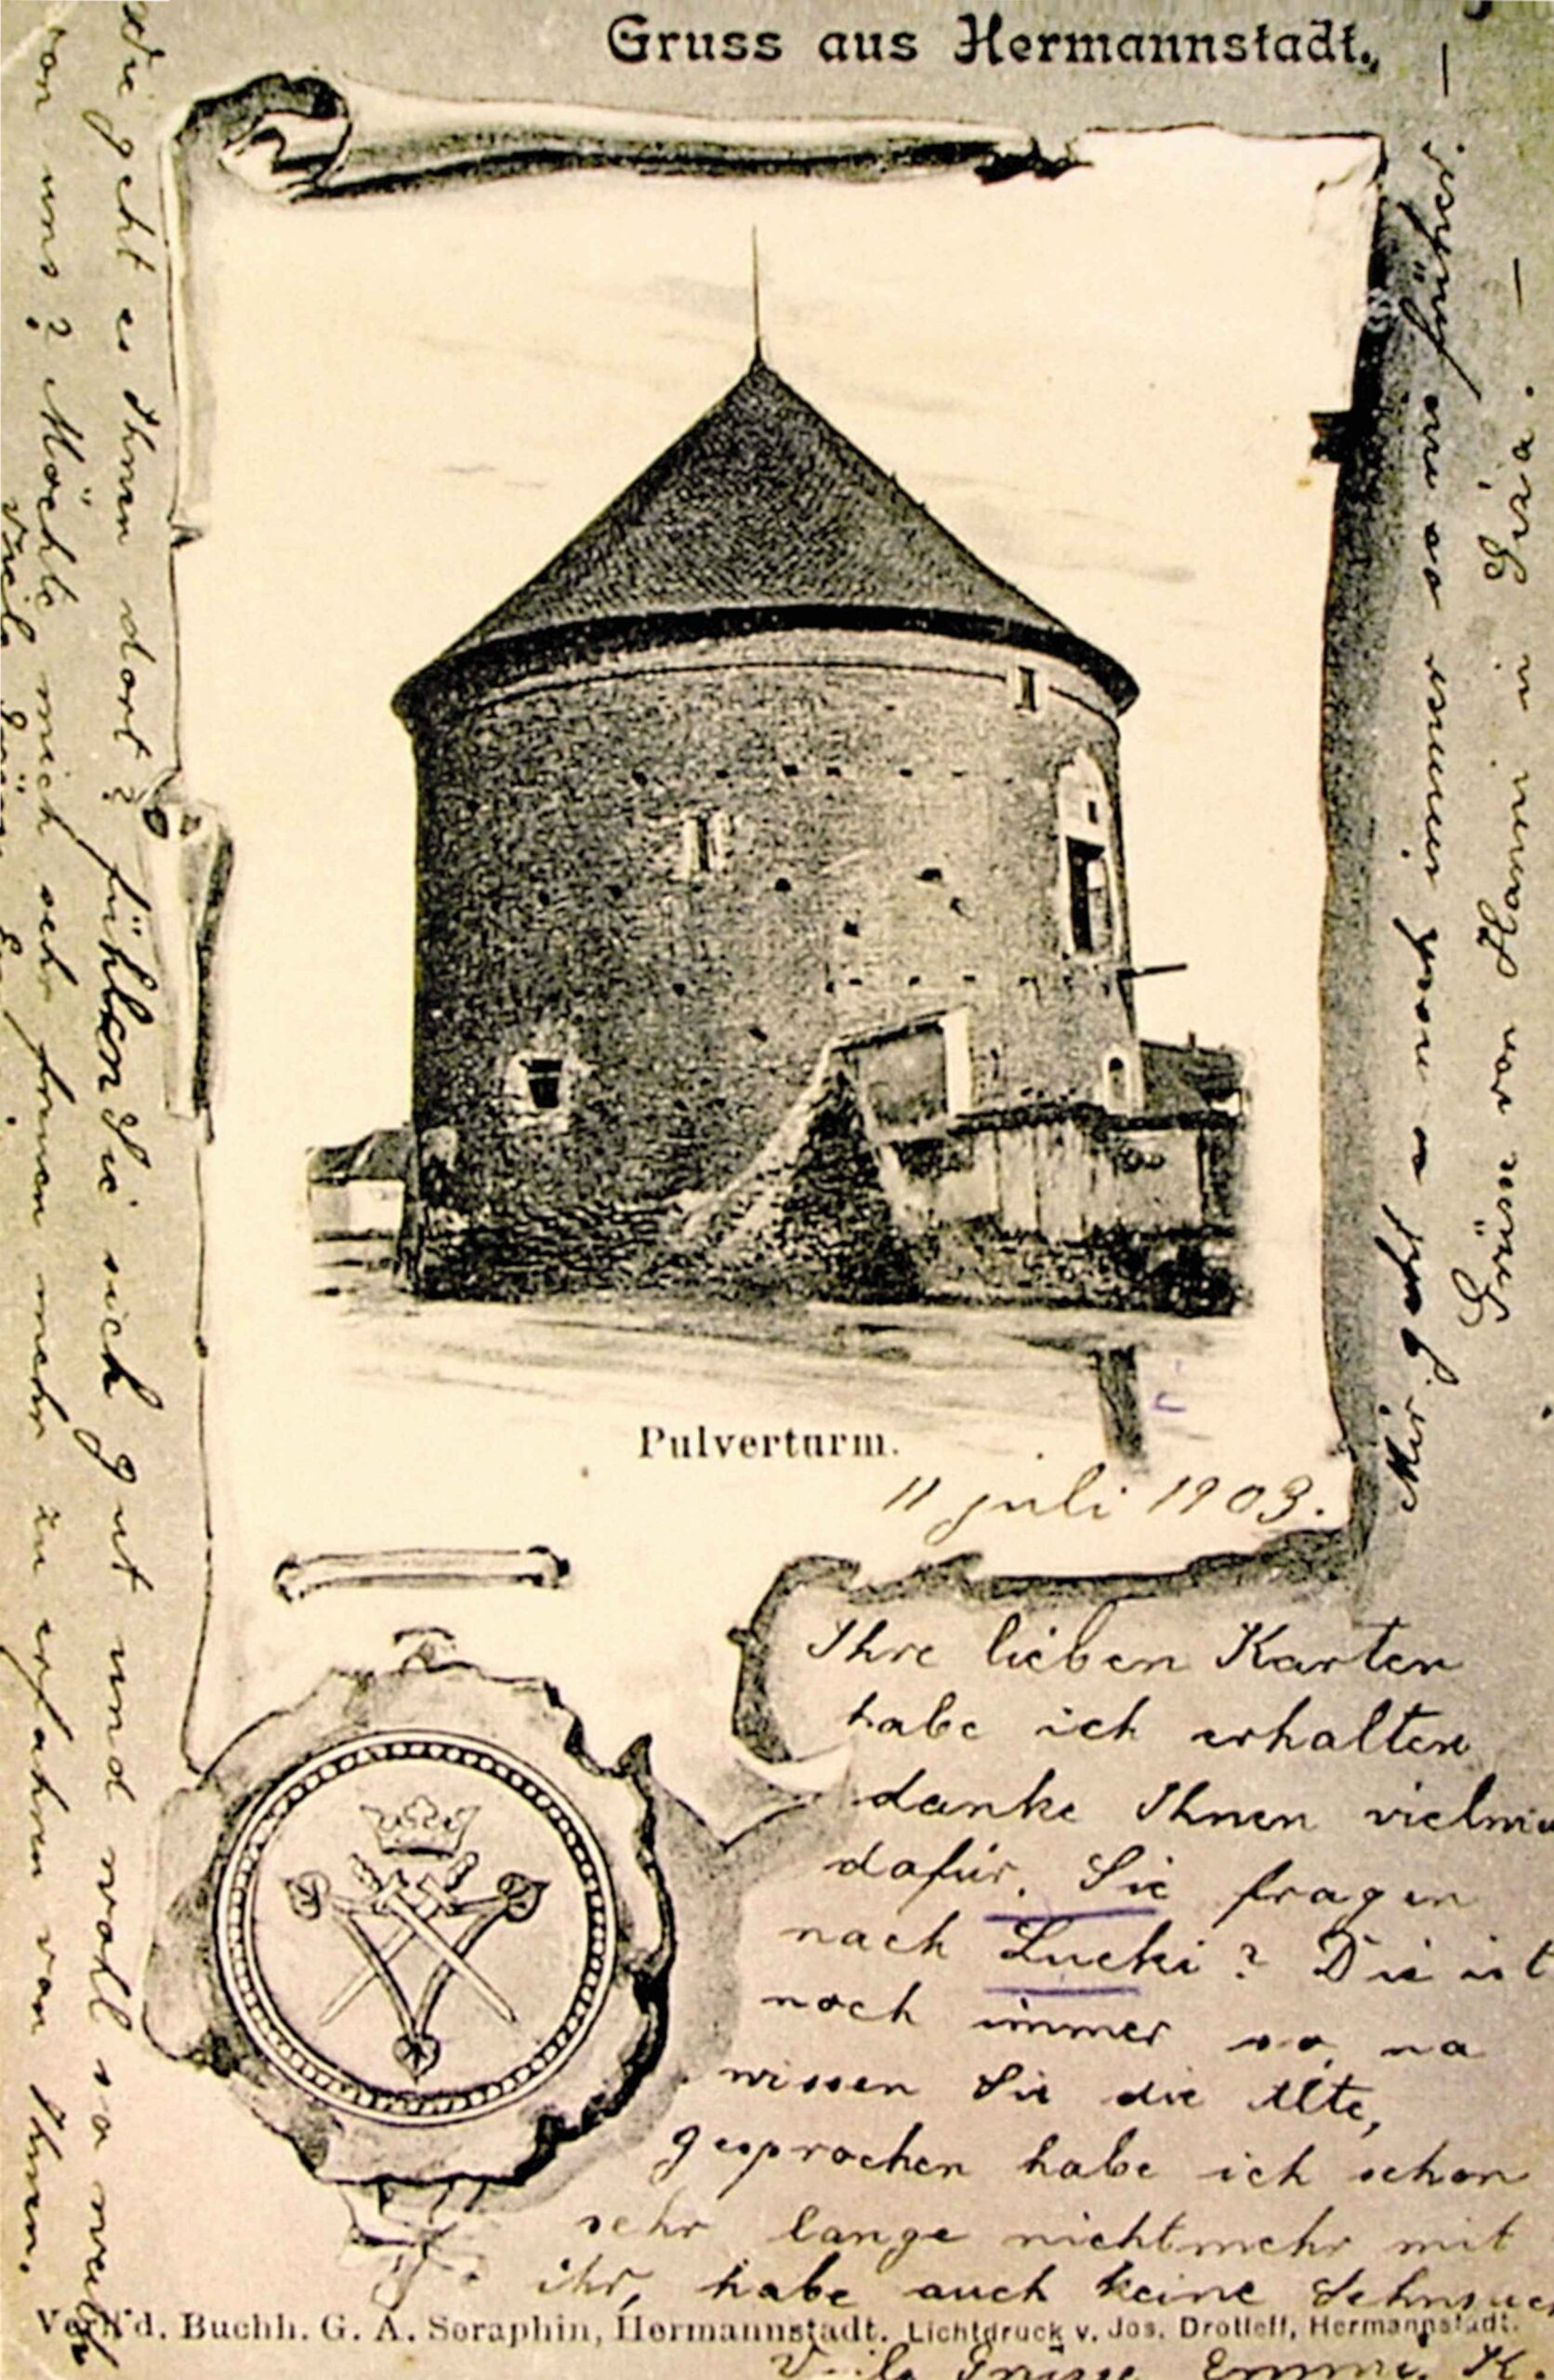 Gruss aus Hermannstadt.
Pulverturm.
11 juli 1903.
Ihre lieben Karten
habe ich erhalten
danke Ihnen vielma
dafür. Sie fragen
nach Lucki? Die ist
noch immer so, na
wissen Sie die Alte,
gesprochen habe ich schon
sehr lange nichtmehr mit
ihr, habe auch keine Sehnsuch
Verl'd. Buchh. G. A. Seraphin, Hermannstadt. Lichtdruck v. Jos. Drotleff, Hermannstadt.
Viele Grüsse Emmi. H.
Wie geht es Ihnen dort? fühlen Sie sich gut und wohl so weit
von uns? Möchte mich sehr freuen mehr zu erfahren von Ihnen.
Viele Grüsse
Mir geht es ganz immer so
Grüsse von Hanni in